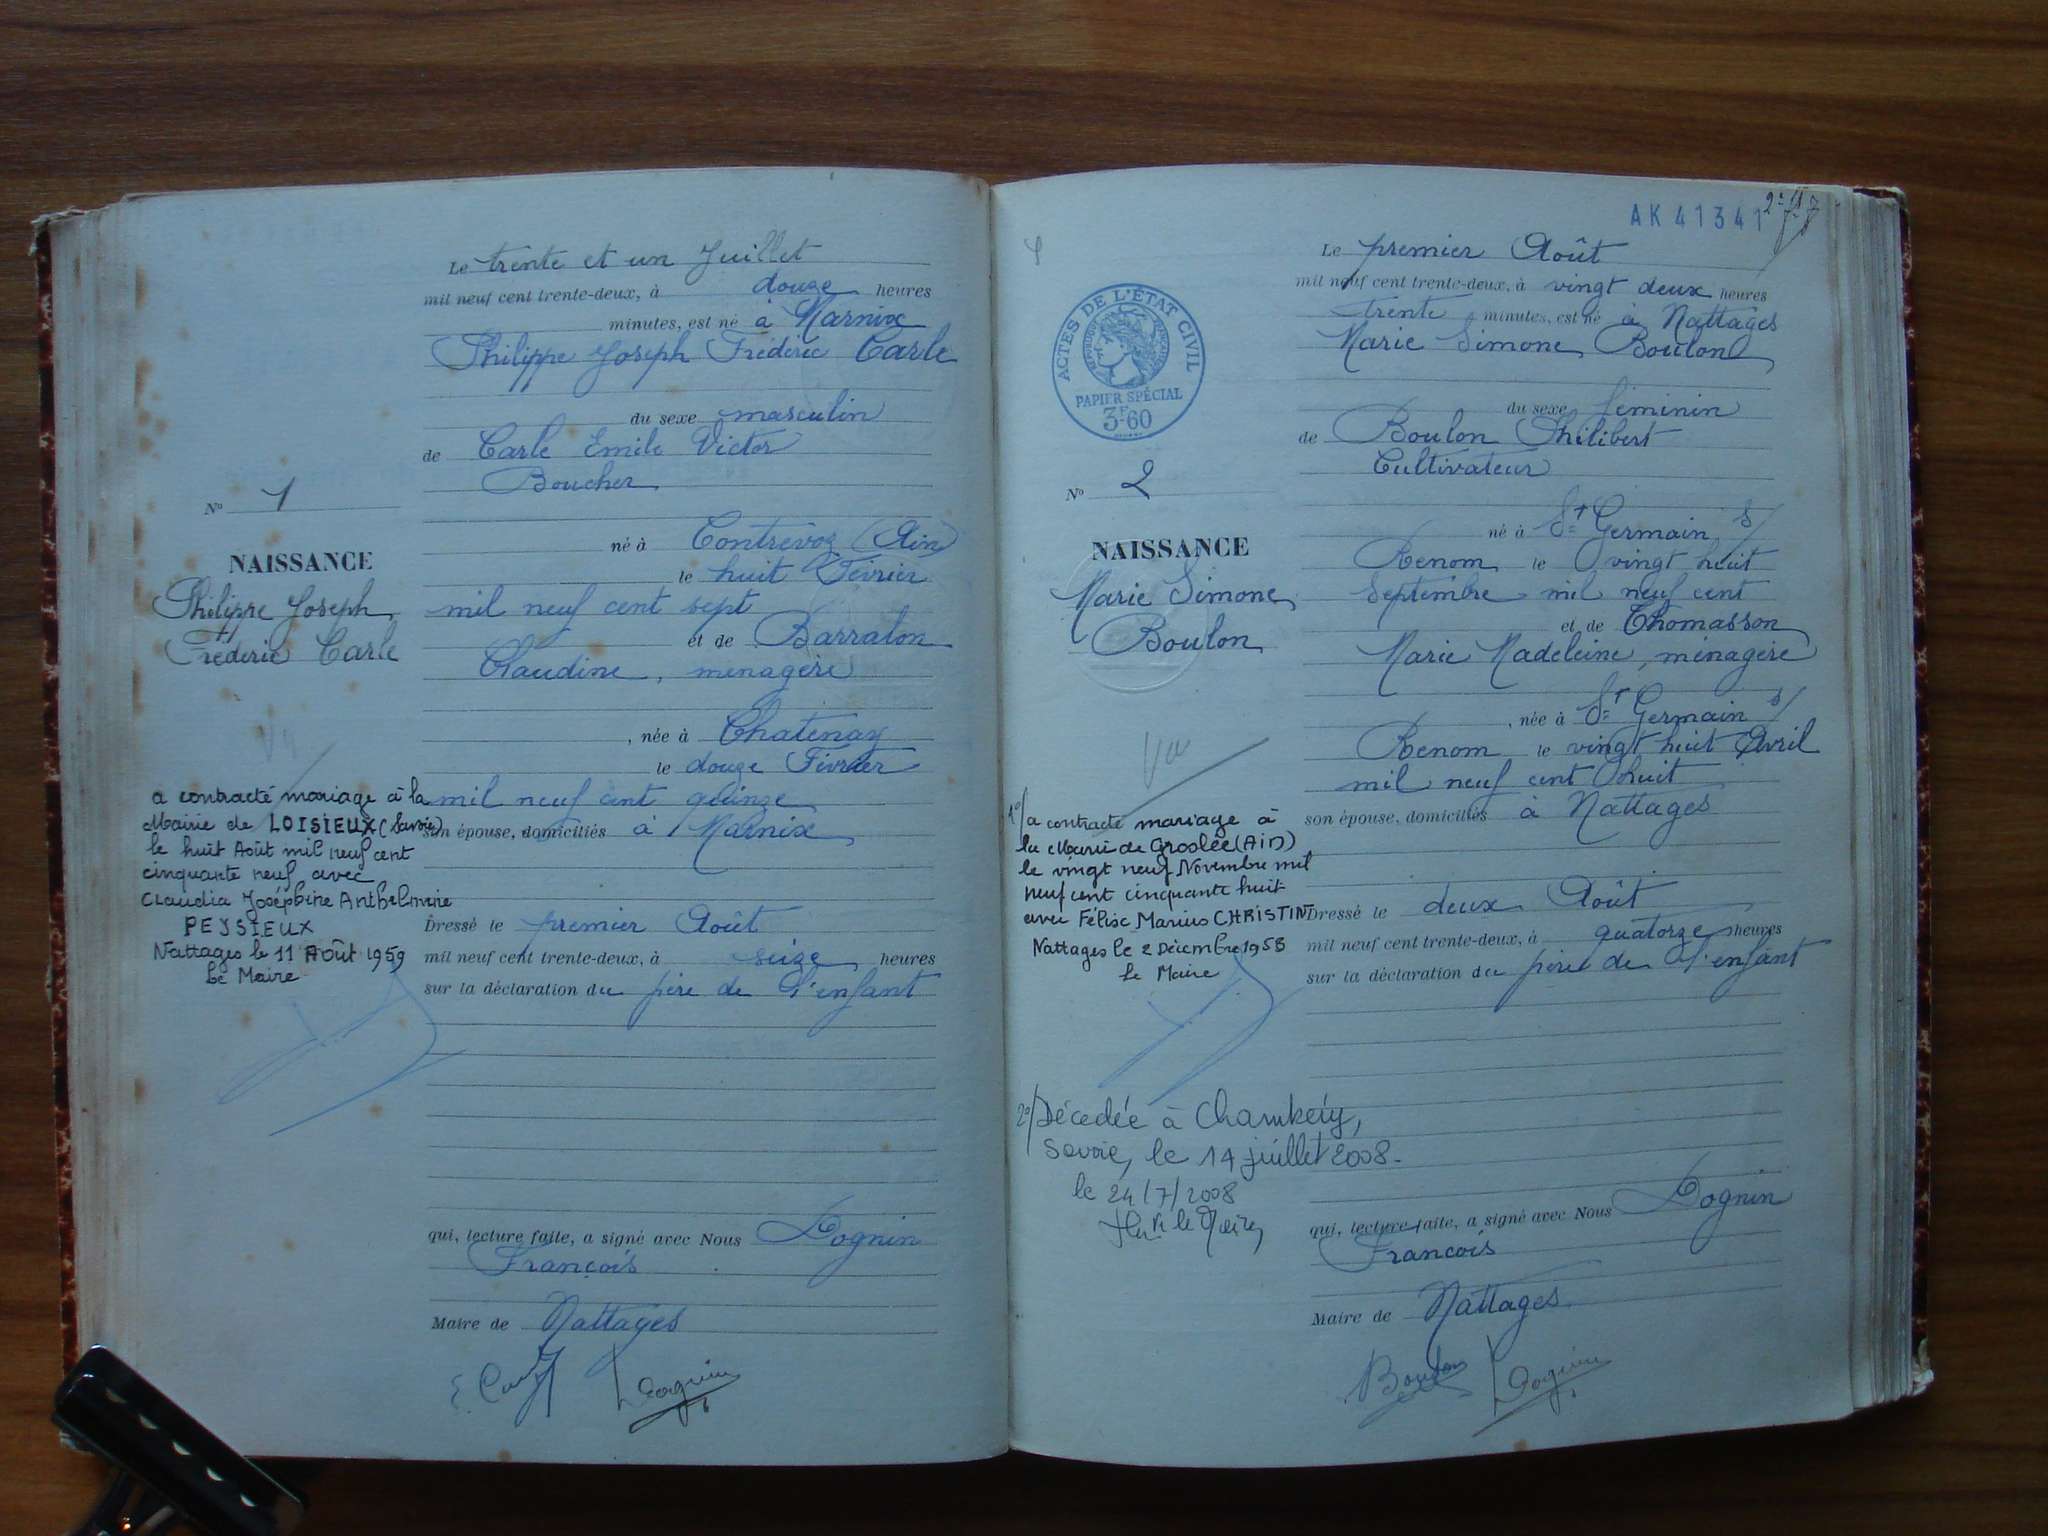 Le trente et un Juillet
mil neuf cent trente-deux, à douze heures
minutes, est né à Marnix
Philippe Joseph Frédéric Carle
du sexe masculin
de Carle Emile Victor
Boucher
né à Contrevoz (Ain)
le huit Février
mil neuf cent sept
et de Barralon
Claudine, ménagère
, née à Chatenay
le douze Février
mil neuf cent quinze
son épouse, domiciliés à Marnix
Dressé le premier Août
mil neuf cent trente-deux, à seize heures
sur la déclaration du père de l'enfant
qui, lecture faite, a signé avec Nous Dognin
François
Maire de Nattages
Dognin
N° 1
NAISSANCE
Philippe Joseph
Frédéric Carle
Vu
a contracté mariage à la
Mairie de LOISIEUX (Savoie)
le huit Août mil neuf cent
cinquante neuf avec
Claudia Joséphine Anthelmine
PEYSIEUX
Nattages le 11 Août 1959
Le Maire
AK 41341
Le premier Août
mil neuf cent trente-deux, à vingt deux heures
trente minutes, est né à Nattages
Marie Simone Boulon
du sexe féminin
de Boulon Philibert
Cultivateur
né à St Germain s/
Renom le vingt huit
Septembre mil neuf cent
et de Thomasson
Marie Madeleine, ménagère
, née à St Germain s/
Renom le vingt huit Avril
mil neuf cent huit
son épouse, domiciliés à Nattages
Dressé le deux Août
mil neuf cent trente-deux, à quatorze heures
sur la déclaration du père de l'enfant
qui, lecture faite, a signé avec Nous Dognin
François
Maire de Nattages
Boulon Dognin
ACTES DE L'ÉTAT CIVIL
PAPIER SPÉCIAL
3F60
N° 2
NAISSANCE
Marie Simone
Boulon
Vu
1°/ a contracté mariage à
la Mairie de Groslée (Ain)
le vingt neuf Novembre mil
neuf cent cinquante huit
avec Félix Marius CHRISTIN
Nattages le 2 Décembre 1958
Le Maire
2°/ Décédée à Chambéry,
Savoie, le 14 juillet 2008.
le 24/7/2008
le Maire